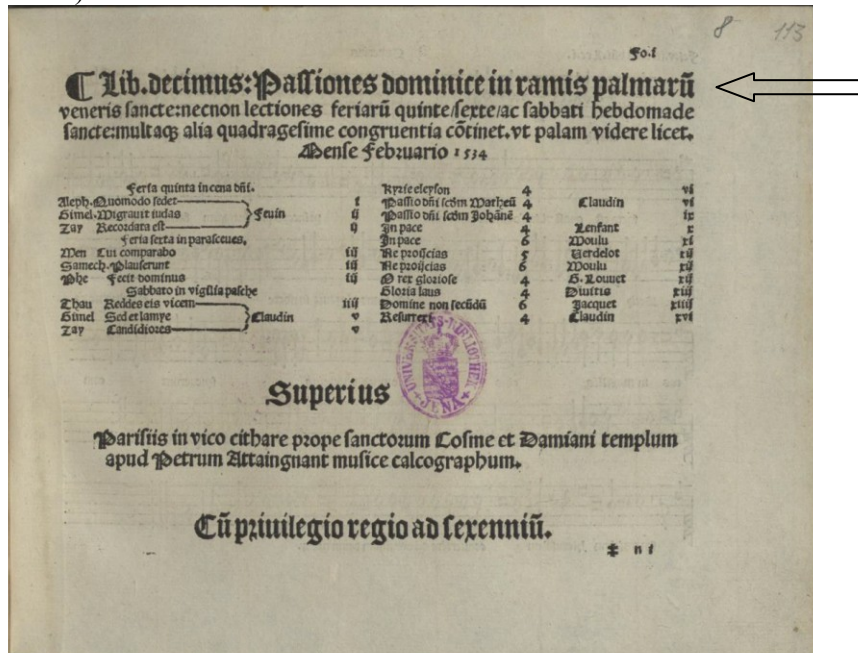 8 113
Fo.i
¶ Lib.decimus:Passiones dominice in ramis palmarū
veneris sancte:necnon lectiones feriarū quinte/sexte/ac sabbati hebdomade
sancte:multaqꝫ alia quadragesime congruentia cōtinet.vt palam videre licet.
Mense Februario 1534
Feria quinta in cena dñi.
Aleph. Quomodo sedet i
Gimel. Migrauit iudas Feuin ij
Zay Recordata est ij
Feria sexta in parasceues.
Men Cui comparabo iij
Samech. Plauserunt iij
Phe Fecit dominus iij
Sabbato in vigilia pasche
Thau Reddes eis vicem iiij
Gimel Sed et lamye Claudin v
Zay Candidiores v
Kyrie eleyson 4 vi
Passio dñi scdm Matheū 4 Claudin vi
Passio dñi scdm Johānē 4 ix
In pace 4 Lenfant x
In pace 6 Moulu xi
Ne proijcias 5 Verdelot xij
Ne proijcias 6 Moulu xij
O rex gloriose 4 G. Louuet xij
Gloria laus 4 Diuitis xiij
Domine non secūdū 6 Jacquet xiiij
Resurrexi 4 Claudin xvi
UNIVERSITÄTS-BIBLIOTHEK JENA
Superius
Parisiis in vico cithare prope sanctorum Cosme et Damiani templum
apud Petrum Attaingnant musice calcographum.
Cū priuilegio regio ad sexenniū.
‡ n i